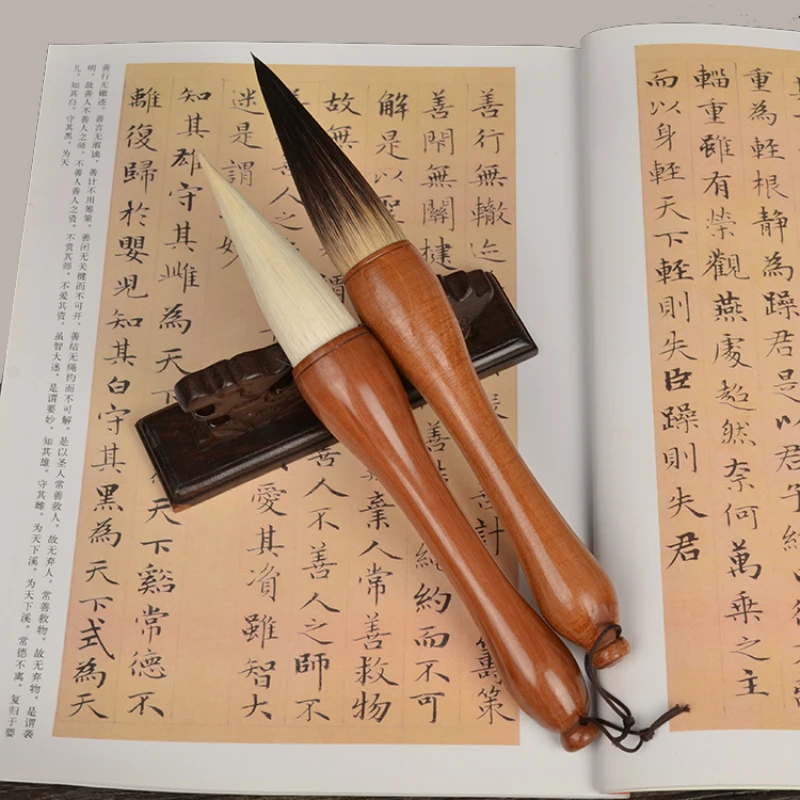 重為輕根靜為躁君是以君子終
輜重雖有榮觀燕處超然奈何萬乘之主
而以身輕天下輕則失臣躁則失君
善行無轍迹計籌策
善閇無關楗善約而不可
解是以聖棄人常善救物
故無謂人不善人之師不
善人之愛其資雖智大
迷是謂妙
知其雄守其雌為天下天下谿常德不
離復歸於嬰兒知其白守其黑為天下式為天
善行无辙迹，善言无瑕谪，善计不用筹策，善闭无关楗而不可开，善结无绳约而不可解。是以圣人常善救人，故无弃人，常善救物，故无弃物。是谓袭
明。故善人不善人之师，不善人善人之资。不贵其师，不爱其资，虽智大迷，是谓要妙。知其雄，守其雌，为天下溪。为天下溪，常德不离，复归于婴
儿。知其白，守其黑，为天